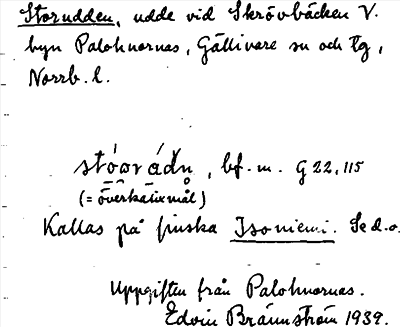 Storudden, udde vid Skrövbäcken V.
byn Palohuornas, Gällivare sn och tg,
Norrb. l.
stóωrádn, bf. m. G 22, 115
(= överkalixmål)
Kallas på finska Isoniemi. Se d.o.
Uppgiften från Palohuornas.
Edvin Brännström 1939.